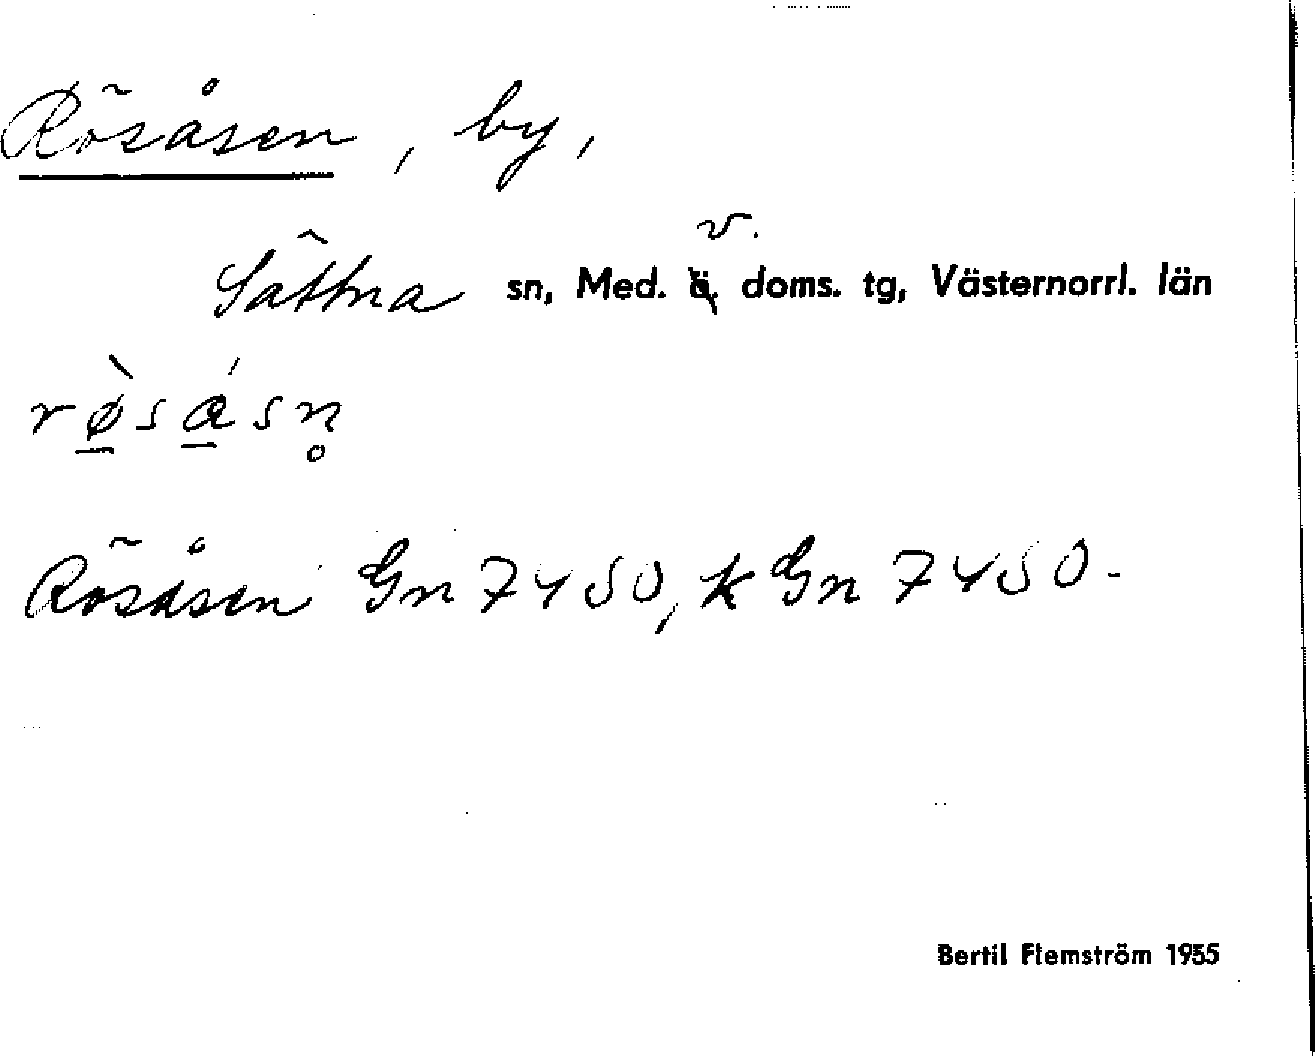 Rösåsen, by,
Sättna sn, Med. v. doms. tg, Västernorrl. län
rø̱̀sá̱sn̥
Rösåsen Gn 7450, k Gn 7450-
Bertil Flemström 1955